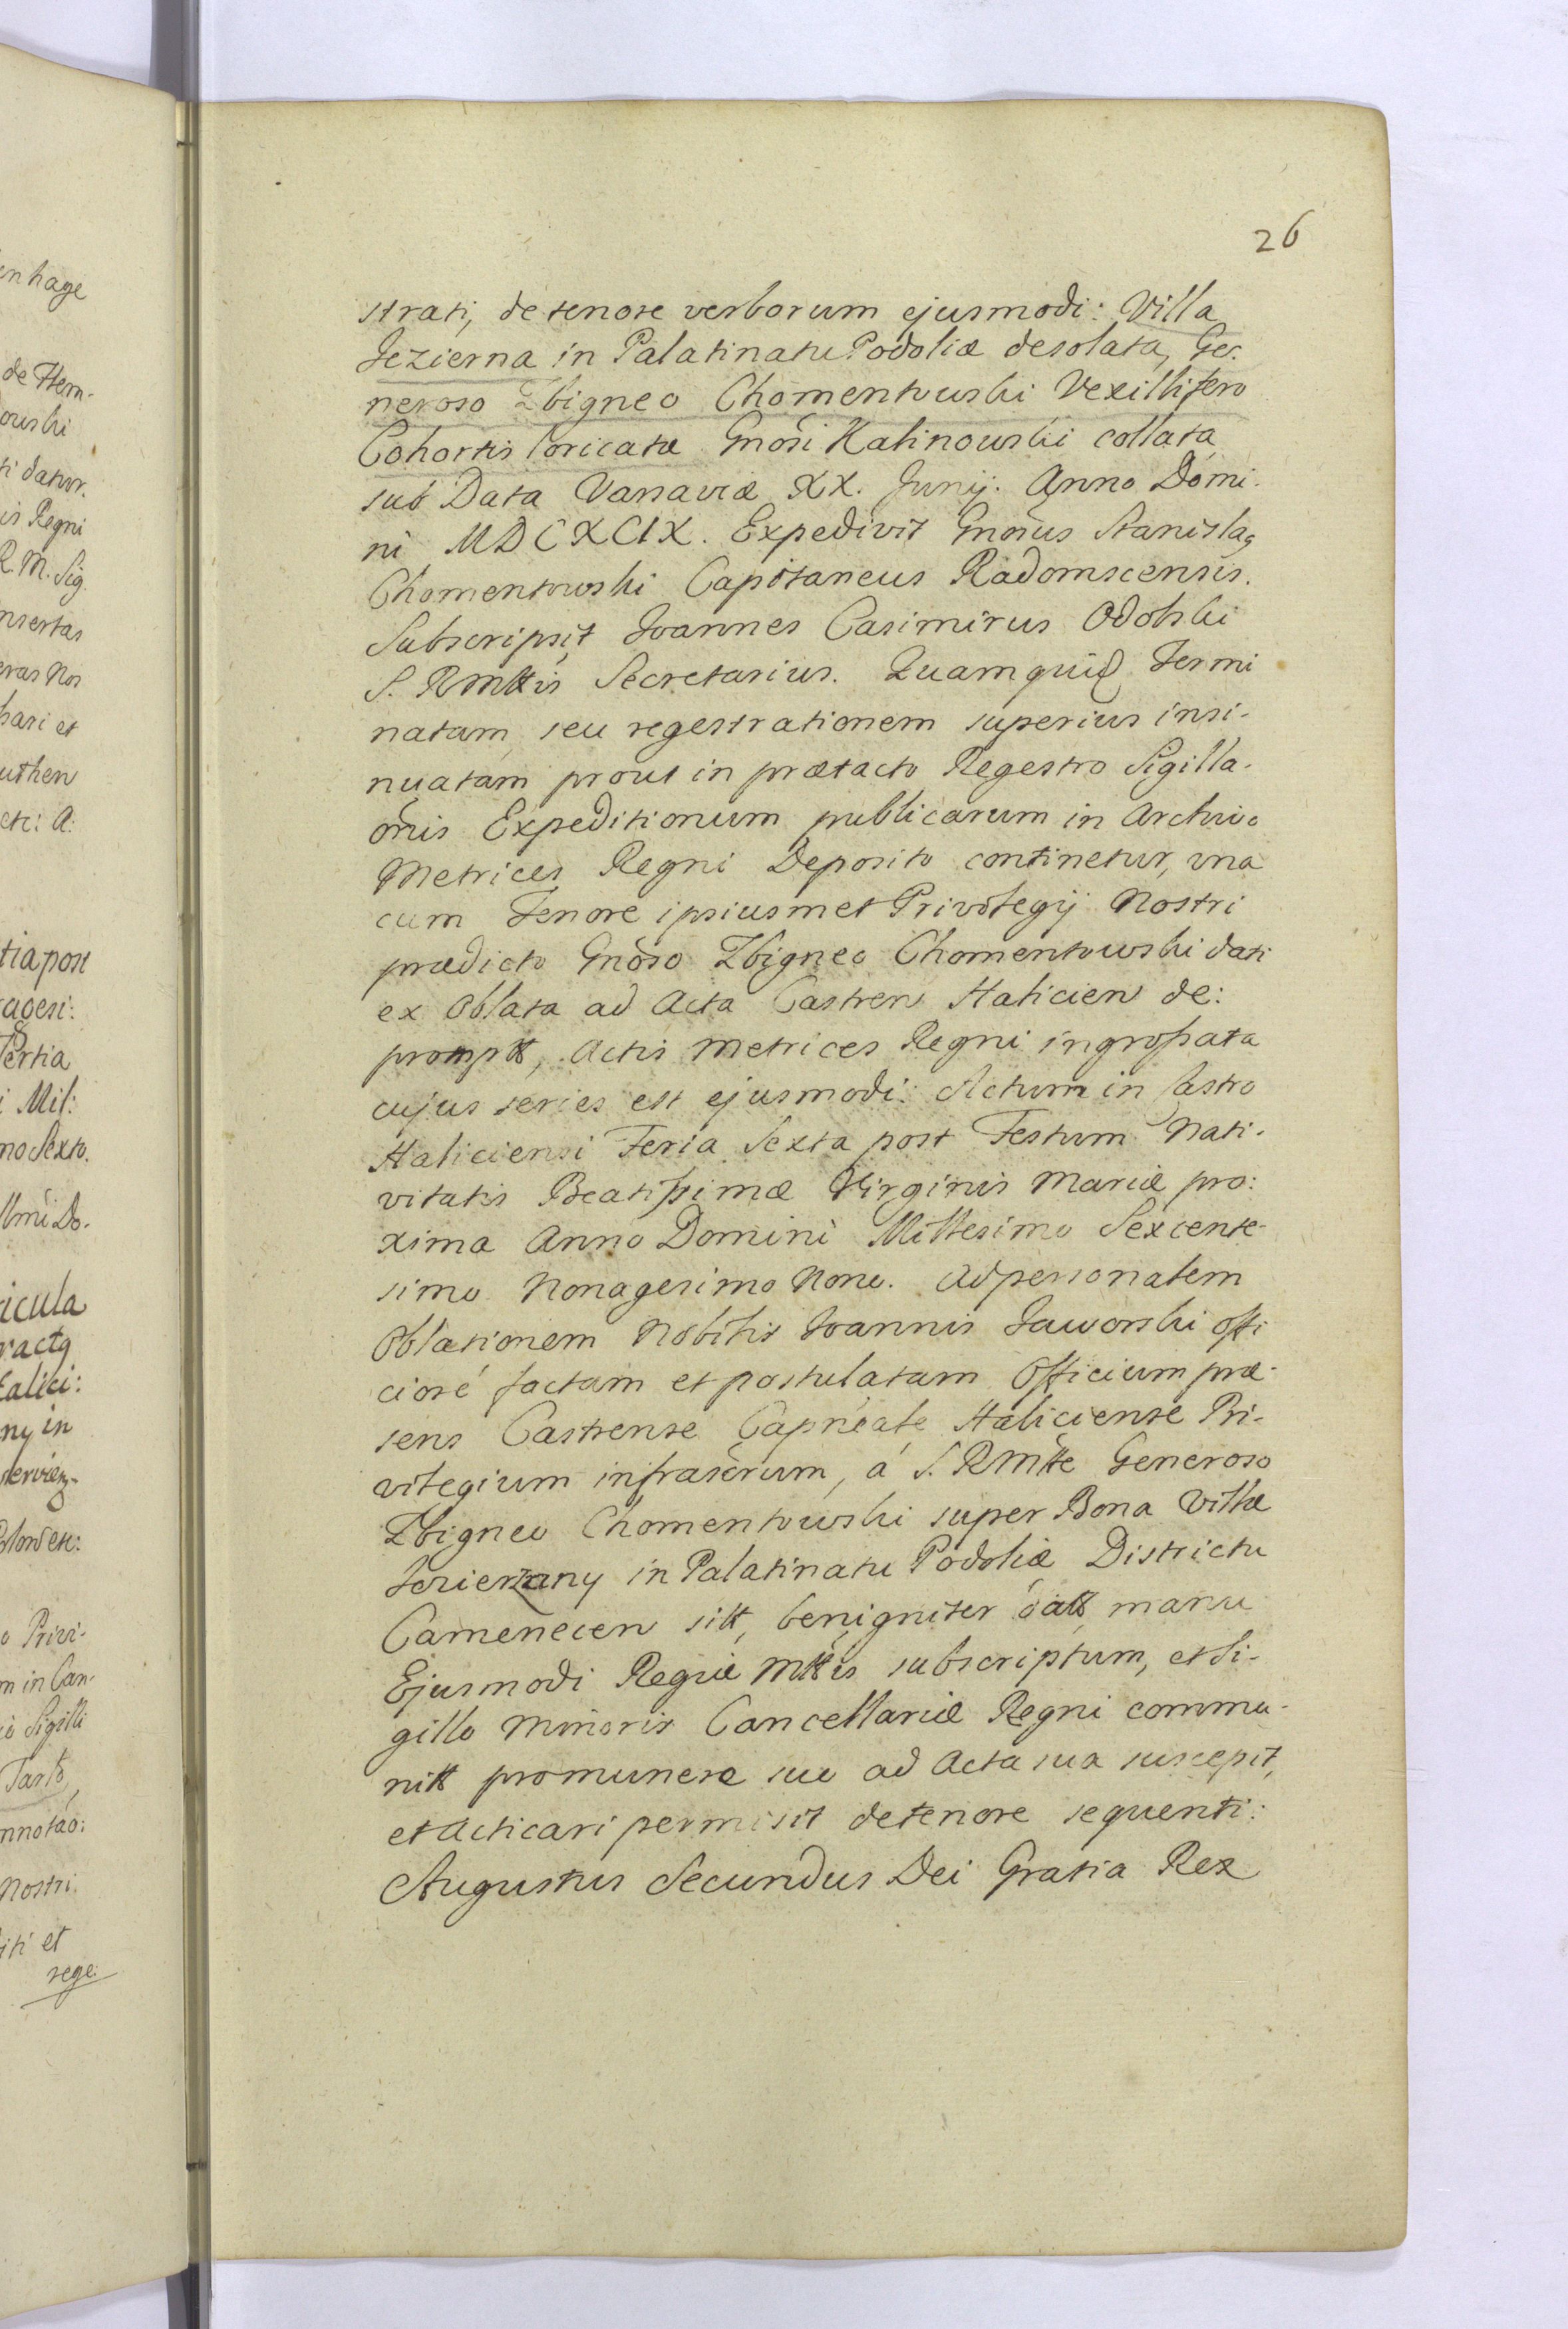 26
strati, de tenore verborum ejusmodi: Villa
Jezierna in Palatinatu Podoliæ desolata, Ge-
neroso Zbigneo Chomentowski Vexillifero
Cohortis Loricatæ Gnosi Kalinowski collata
sub Data Varsaviæ XX. Junij. Anno Domi-
ni MDCXCIX. Expedivit Gnosus Stanislaꝯ
Chomentowski Capitaneus Radomscensis.
Subscripsit Joannes Casimirus Odolski
S. RMttis Secretarius. Quamquid Termi
natam seu regestrationem superius insi-
nuatam prout in prætacto Regestro Sigilla-
onis Expeditionum publicarum in Archivo
Metrices Regni Deposito continetur, una
cum Tenore ipsiusmet Privilegij Nostri
prædicto Gnoso Zbigneo Chomentowski dati
ex Oblata ad Acta Castren Halicien de:
promptt, Actis Metrices Regni ingrossata
cujus series est ejusmodi: Actum in Castro
Haliciensi Feria Sexta post Festum Nati-
vitatis Beatissimæ Virginis Mariæ pro:
xima Anno Domini Millesimo Sexcente-
simo Nonagesimo Nono. Ad personalem
Oblationem Nobilis Joannis Jaworski offi
ciose factam et postulatam Officium præ-
sens Castrense Capneale Haliciense Pri-
vilegium infrascrum, á S. RMtte Generoso
Zbigneo Chomentowski super Bona Villæ
Jezierzany in Palatinatu Podoliæ Districtu
Camenecen sitt, benigniter datt, manu
Ejusmodi Regiæ Mttis subscriptum, et Si-
gillo Minoris Cancellariæ Regni commu-
nitt pro munere suo ad Acta sua suscepit,
et Acticari permisit de tenore sequenti:
Augustus Secundus Dei Gratia Rex